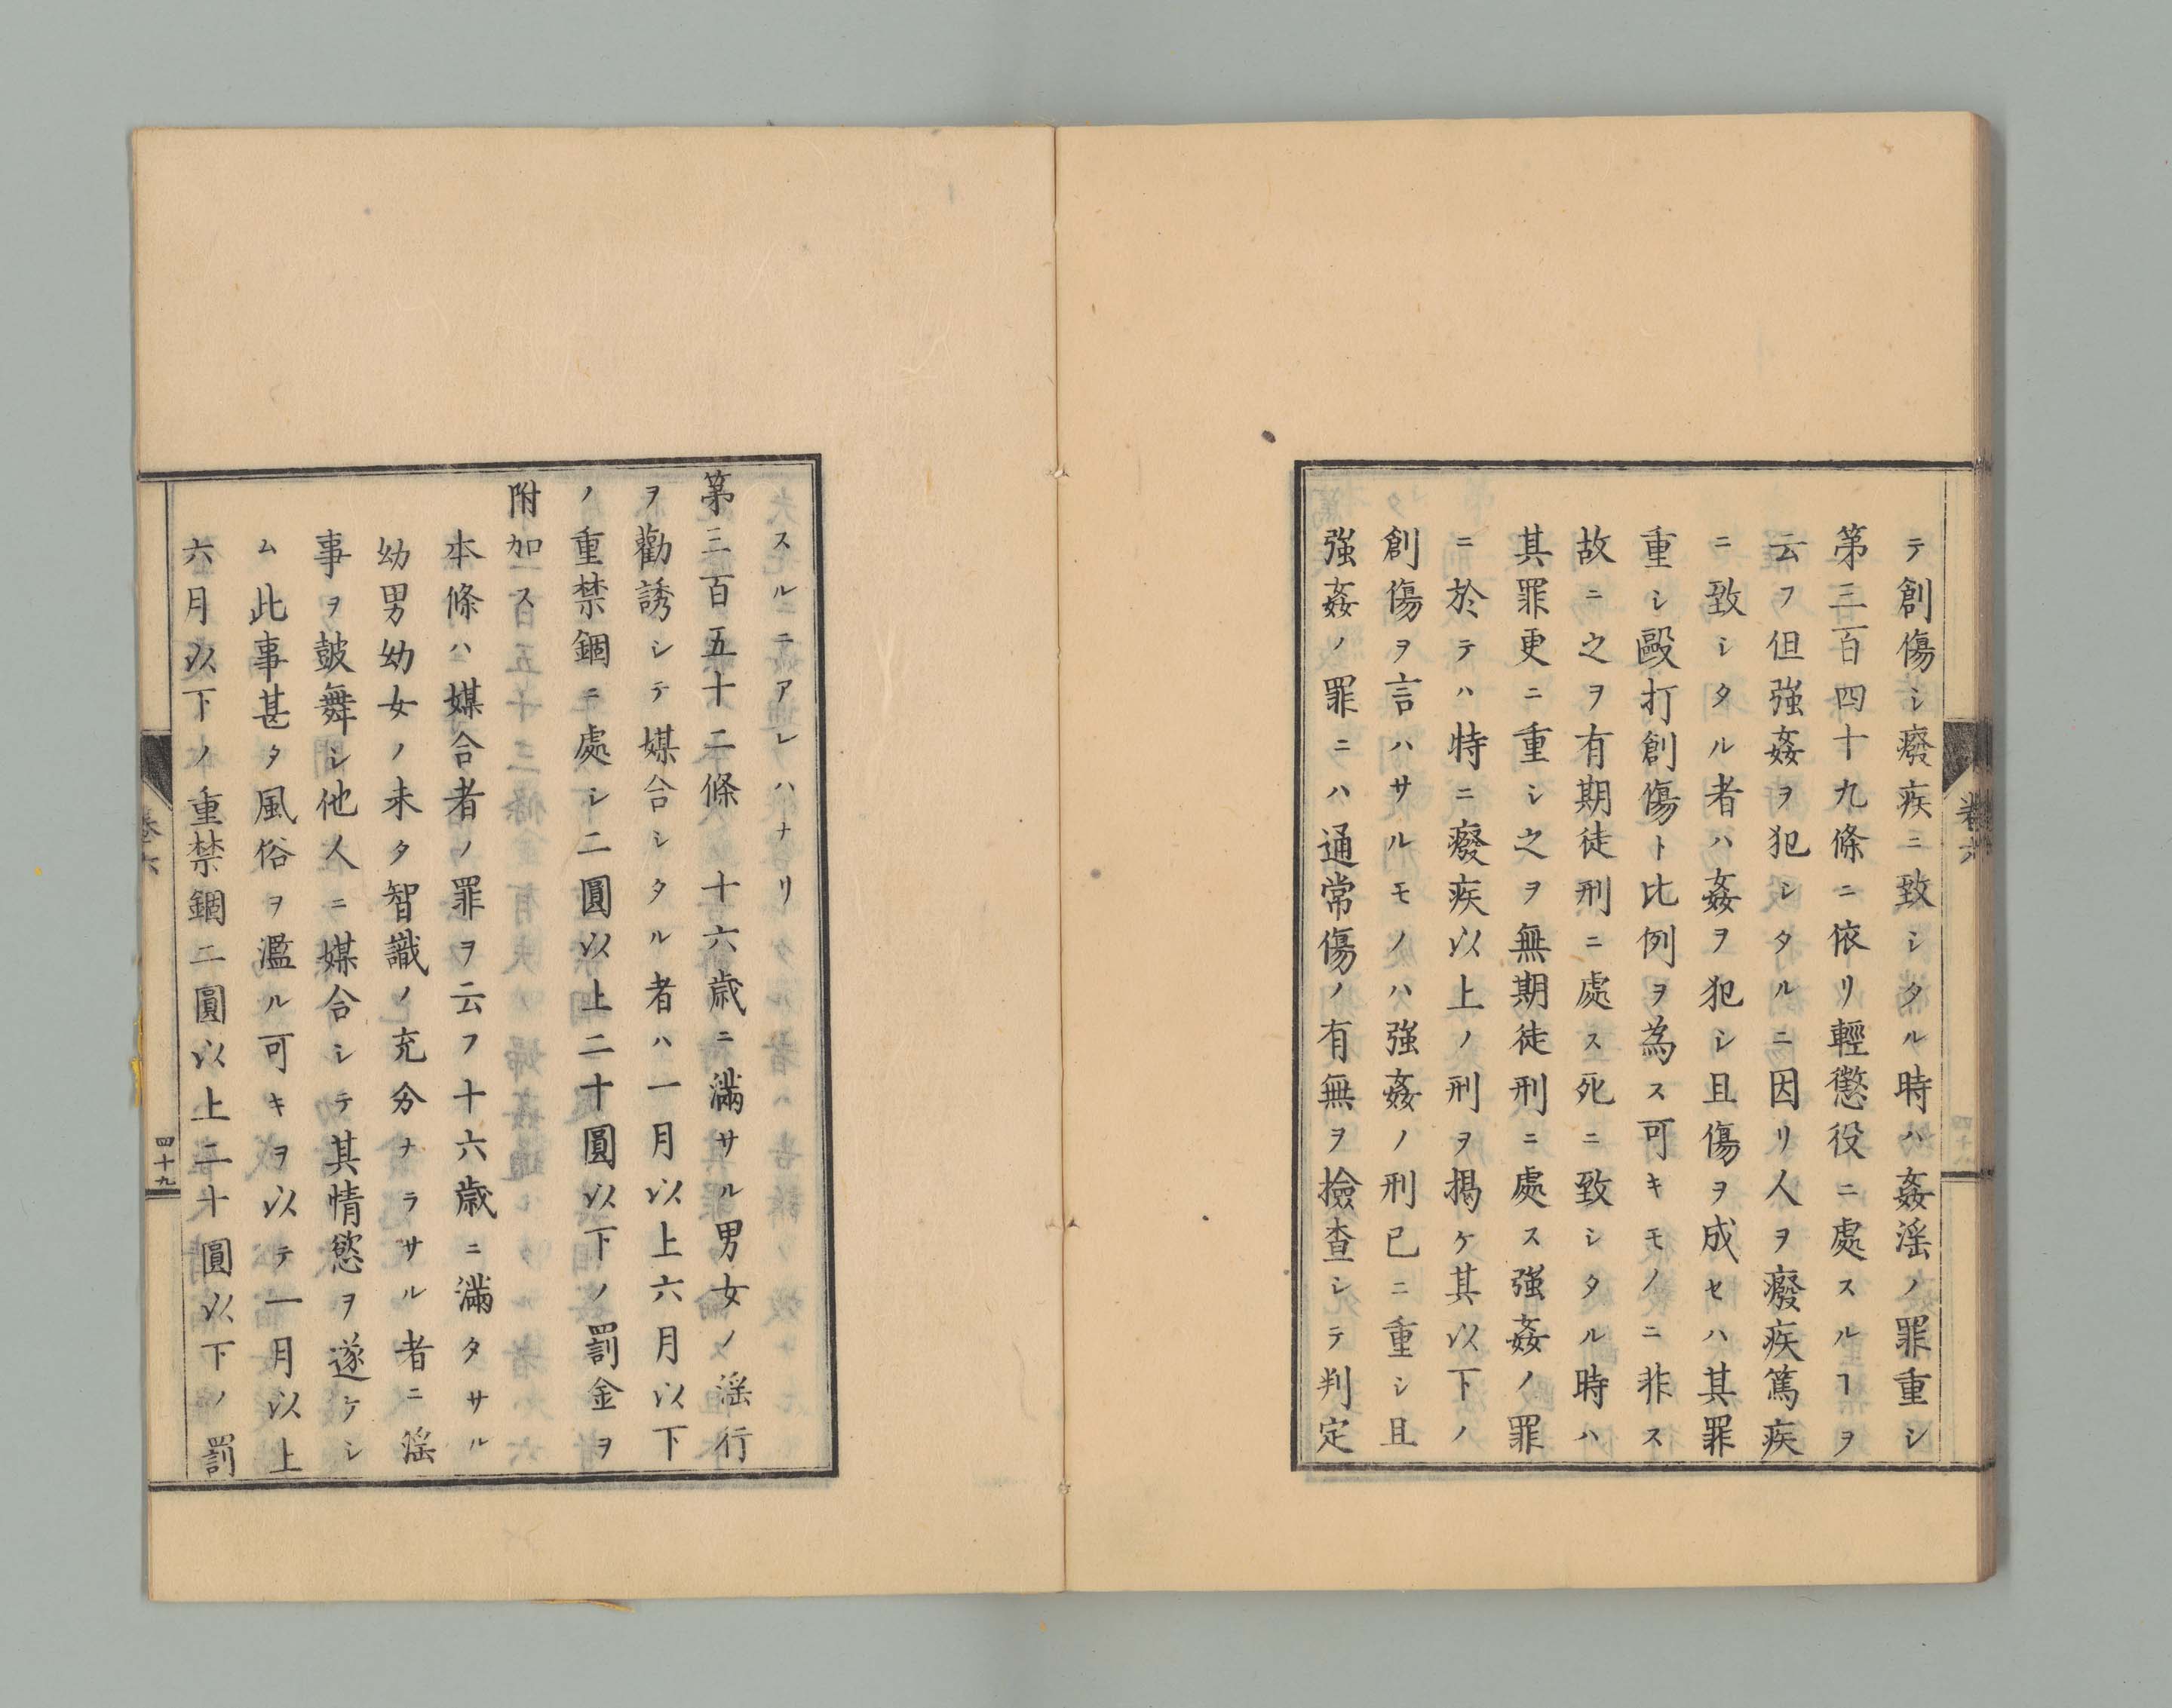 テ創傷シ癈疾ニ致シタル時ハ姦淫ノ罪重シ
第三百四十九條ニ依リ輕懲役ニ處スルヿヲ
云フ但強姦ヲ犯シタルニ因リ人ヲ癈疾篤疾
ニ致シタル者ハ姦ヲ犯シ且傷ヲ成セハ其罪
重シ毆打創傷ト比例ヲ為ス可キモノニ非ス
故ニ之ヲ有期徒刑ニ處ス死ニ致シタル時ハ
其罪更ニ重シ之ヲ無期徒刑ニ處ス强姦ノ罪
ニ於テハ特ニ癈疾以上ノ刑ヲ揭ケ其以下ノ
創傷ヲ言ハサルモノハ强姦ノ刑已ニ重シ且
强姦ノ罪ニハ通常傷ノ有無ヲ撿查シテ判定
卷六
スルニテアレハナリ
第三百五十二條　十六歲ニ滿サル男女ノ淫行
ヲ勸誘シテ媒合シタル者ハ一月以上六月以下
ノ重禁錮ニ處シ二圓以上二十圓以下ノ罰金ヲ
附加ス
本條ハ媒合者ノ罪ヲ云フ十六歲ニ滿タサル
幼男幼女ノ未タ智識ノ充分ナラサル者ニ淫
事ヲ鼓舞シ他人ニ媒合シテ其情慾ヲ遂ケシ
ム此事甚タ風俗ヲ濫ル可キヲ以テ一月以上
六月以下ノ重禁錮二圓以上二十圓以下ノ罰
卷六
四十九